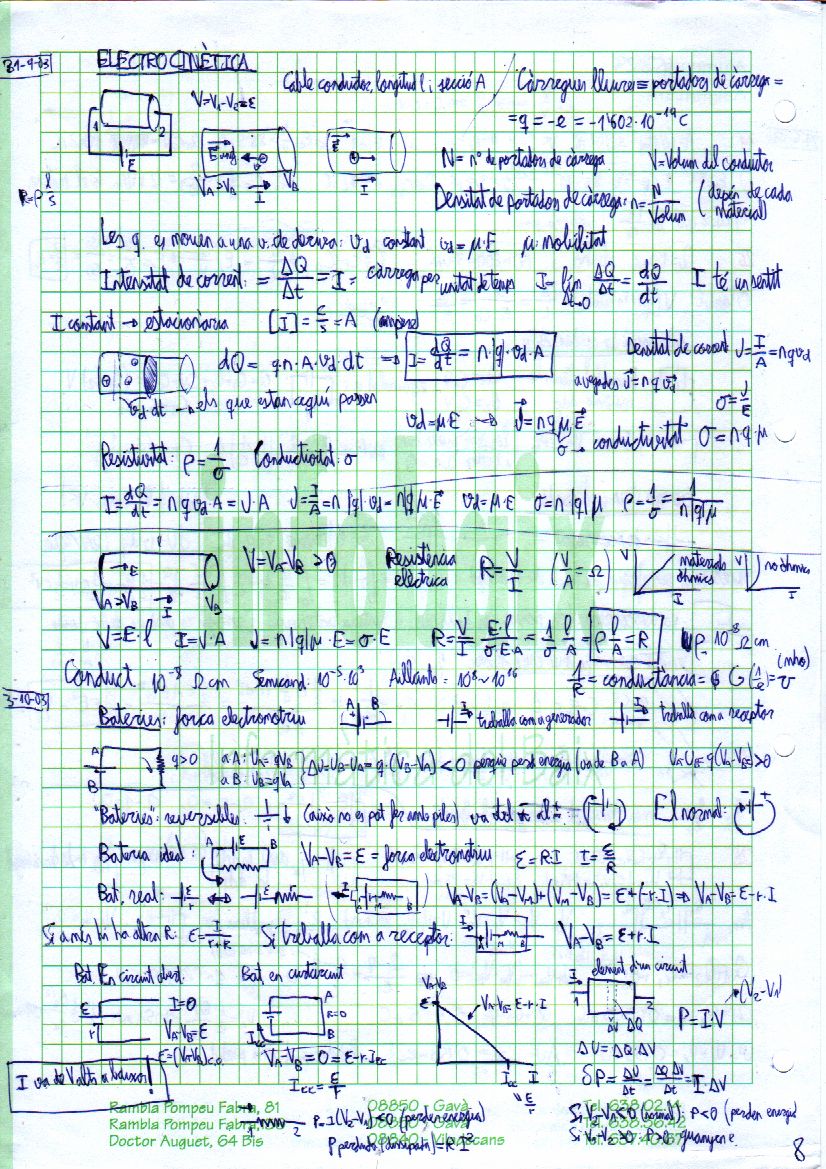 31-9-03
ELECTROCINÈTICA
Cable conductor, longitud l i secció A
Càrregues lliures ≡ portadors de càrrega =
= q = -e = -1'602·10⁻¹⁹ C
V=V₁-V₂=E
1 2
E
R=ρ l/s
VA>VB → I VB
I
N = nº de portadors de càrrega V=Volum del conductor
Densitat de portadors de càrrega: n= N/Volum (depèn de cada material)
Les q. es mouen a una v. de deriva: vd constant vd=μ·E μ: mobilitat
Intensitat de corrent: = ΔQ/Δt = I = càrrega per unitat de temps I= lim Δt→0 ΔQ/Δt = dQ/dt I té un sentit
I constant → estacionària [I] = C/s = A (ampere)
dQ = q·n·A·vd·dt ⇒ I= dQ/dt = n·|q|·vd·A
Densitat de corrent J= I/A = nqvd
a vegades J=nqvd
vd·dt → els que estan aquí passen
vd=μ·E → J=nqμE
σ= J/E
σ → conductivitat σ=n·q·μ
Resistivitat: ρ= 1/σ Conductivitat: σ
I= dQ/dt = nqvd·A=J·A J= I/A = n|q|·vd=n|q|μ·E vd=μ·E σ=n|q|μ ρ= 1/σ = 1/n|q|μ
→E
V=VA-VB>0
Resistència elèctrica
R= V/I (V/A = Ω)
V I materials òhmics
V I no òhmics
VA>VB → I VB
V=E·l I=J·A J=n|q|μ·E=σ·E R= V/I = E·l/σ·E·A = 1/σ l/A = ρ l/A = R
ρ 10⁻⁸ Ω cm
Conduct. 10⁻⁸ Ω cm Semicond. 10⁻⁵·10³ Aillants = 10⁸~10¹⁶ 1/R = conductància = G (mho)
3-10-03
Bateries: força electromotriu
A B
I treballa com a generador I treballa com a receptor
A B q>0
a A: UA=qVA
a B: UB=qVB
ΔU=UB-UA=q·(VB-VA)<0 perquè perd energia (va de B a A) UA-UB=q(VA-VB)>0
"Bateries": reversibles. (això no es pot fer amb piles) va del - al + El normal:
Bateria ideal: A E B VA-VB=E= força electromotriu E=R·I I= E/R
Bat. real: E r ↔ E r VA-VB=(VA-VM)+(VM-VB)=E+(-r·I)⇒VA-VB=E-r·I
Si a més hi ha altra R: E= I/r+R Si treballa com a receptor: A M B VA-VB=E+r·I
Bat. En circuit obert
E r I=0
VA-VB=E
E=(VA-VB)c.o.
Bat en curtcircuit
A R=0 B
Icc
VA-VB=0=E-r·Icc
Icc= E/r
VA-VB
E VA-VB=E-r·I
Icc I
E/r
element d'un circuit
I 1 2
ΔV ΔQ
P=I·V (V₂-V₁)
ΔU=ΔQ·ΔV
δP= ΔU/Δt = ΔQ·ΔV/Δt = I·ΔV
I va de V alts a baixos!
1 2 P=I(V₂-V₁)<0 (perden energia)
P perduda (dissipada)=R·I²
Si V₂-V₁<0 (normal): P<0 (perden energia)
Si V₂-V₁>0: P>0 guanyen e
Rambla Pompeu Fabra, 81 08850 - Gavà
Rambla Pompeu Fabra, Tel. 638.56.42
Doctor Auguet, 64 Bis 08840 - Viladecans
8